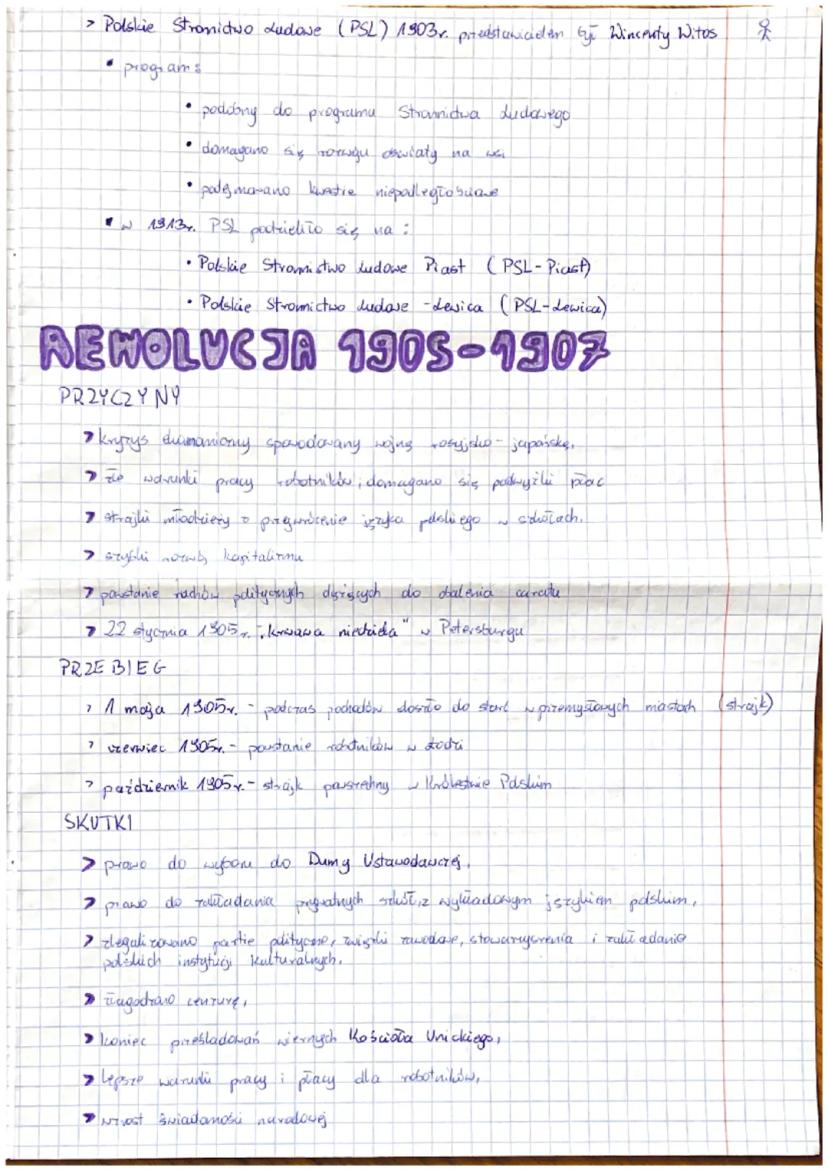 > Polskie Stronnictwo Ludowe (PSL) 1903r. przedstawicielem był Wincenty Witos
• program:
• podobny do programu Stronnictwa Ludowego
• domagano się rozwoju oświaty na wsi
• podejmowano kwestie niepodległościowe
• w 1913r. PSL podzieliło się na:
• Polskie Stronnictwo Ludowe Piast (PSL-Piast)
• Polskie Stronnictwo Ludowe -Lewica (PSL-Lewica)
REWOLUCJA 1905-1907
PRZYCZYNY
> kryzys ekonomiczny spowodowany wojną rosyjsko-japońską,
> złe warunki pracy robotników, domagano się podwyżki płac
> strajki młodzieży o przywrócenie języka polskiego w szkołach.
> szybki rozwój kapitalizmu
> powstanie ruchów politycznych dążących do obalenia caratu
> 22 stycznia 1905r. "krwawa niedziela" w Petersburgu
PRZEBIEG
> 1 maja 1905r. - podczas pochodów doszło do starć w przemysłowych miastach (strajk)
> czerwiec 1905r. - powstanie robotników w Łodzi
> październik 1905r. - strajk powszechny w Królestwie Polskim
SKUTKI
> prawo do wyboru do Dumy Ustawodawczej,
> prawo do zakładania prywatnych szkół, z wykładowym językiem polskim,
> zlegalizowano partie polityczne, związki zawodowe, stowarzyszenia i zakładanie
polskich instytucji kulturalnych.
> złagodzono cenzurę,
> koniec prześladowań wiernych Kościoła Unickiego,
> lepsze warunki pracy i płacy dla robotników,
> wzrost świadomości narodowej